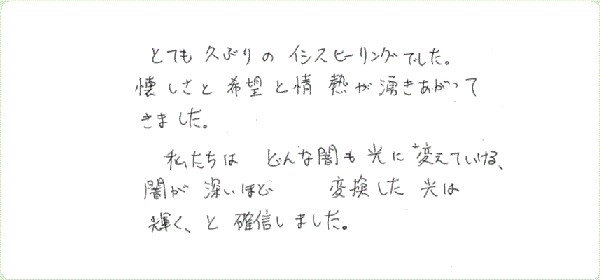 とても久ぶりのイシスヒーリングでした。
懐しさと希望と情熱が湧きあがって
きました。
私たちは どんな闇も光に変えていける、
闇が深いほど 変換した光は
輝く、と確信しました。